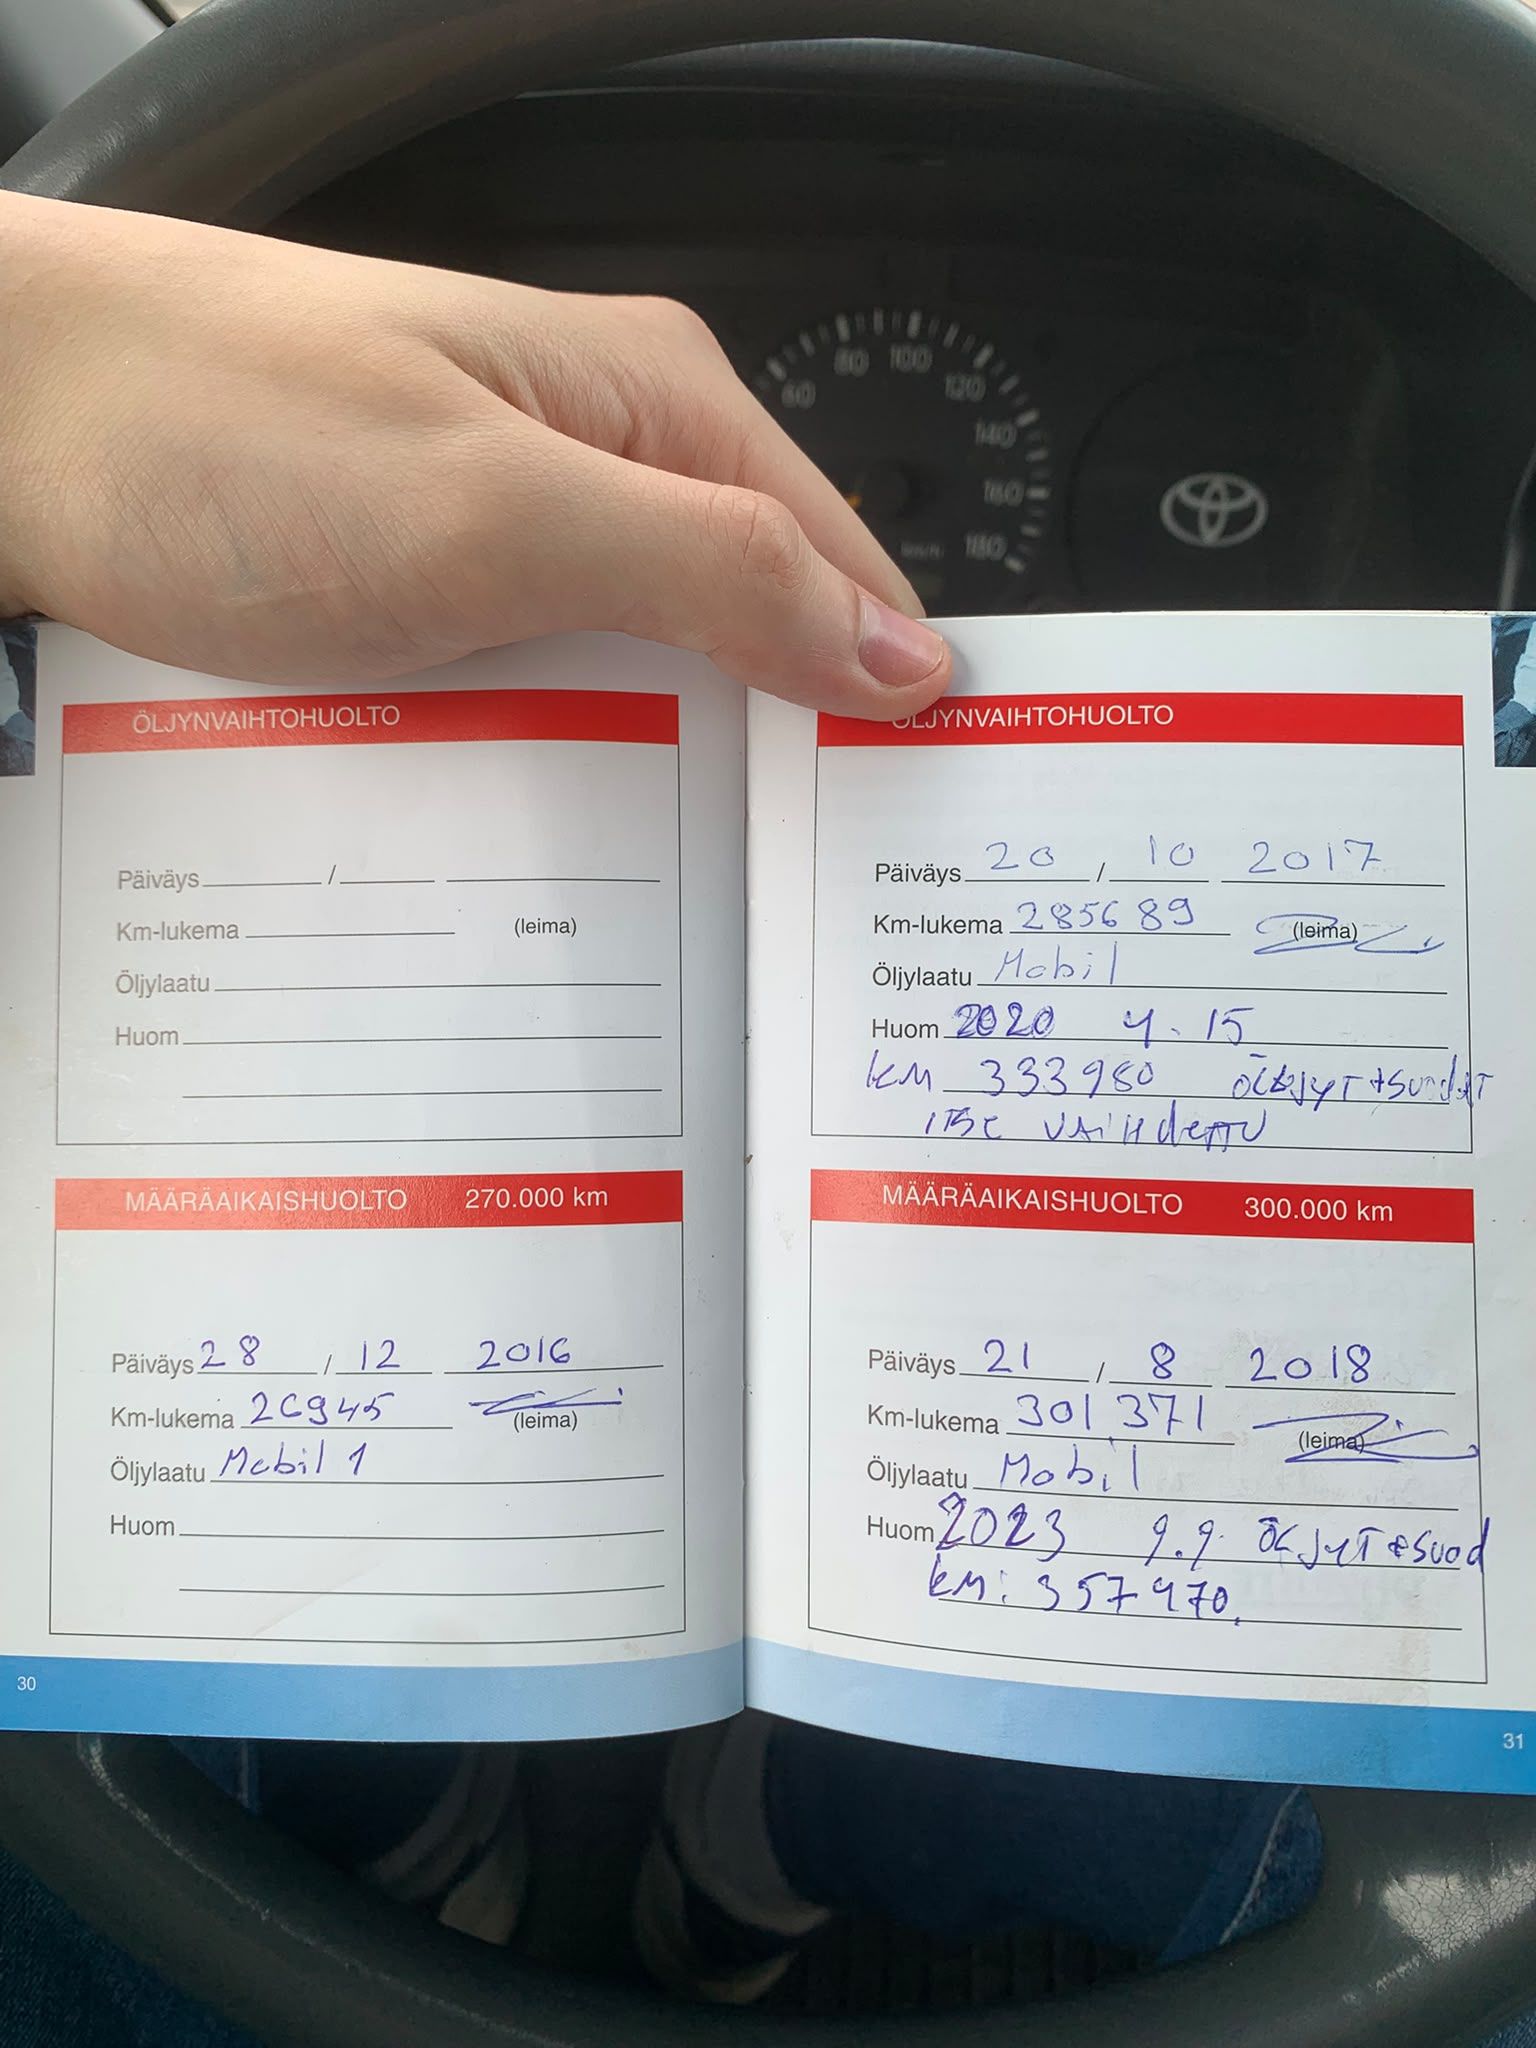 60 80 100 120 140 160 180
km/h
ÖLJYNVAIHTOHUOLTO
Päiväys / 
Km-lukema (leima)
Öljylaatu
Huom
MÄÄRÄAIKAISHUOLTO 270.000 km
Päiväys 28 / 12 2016
Km-lukema 26945 (leima)
Öljylaatu Mobil 1
Huom
30
ÖLJYNVAIHTOHUOLTO
Päiväys 20 / 10 2017
Km-lukema 285689 (leima)
Öljylaatu Mobil
Huom 2020 4.15
km 333980 ÖLJYT+SUODAT
ITSE VAIHdeTTU
MÄÄRÄAIKAISHUOLTO 300.000 km
Päiväys 21 / 8 2018
Km-lukema 301.371 (leima)
Öljylaatu Mobil
Huom 2023 9.9. ÖLJYT+Suod
km: 357470.
31